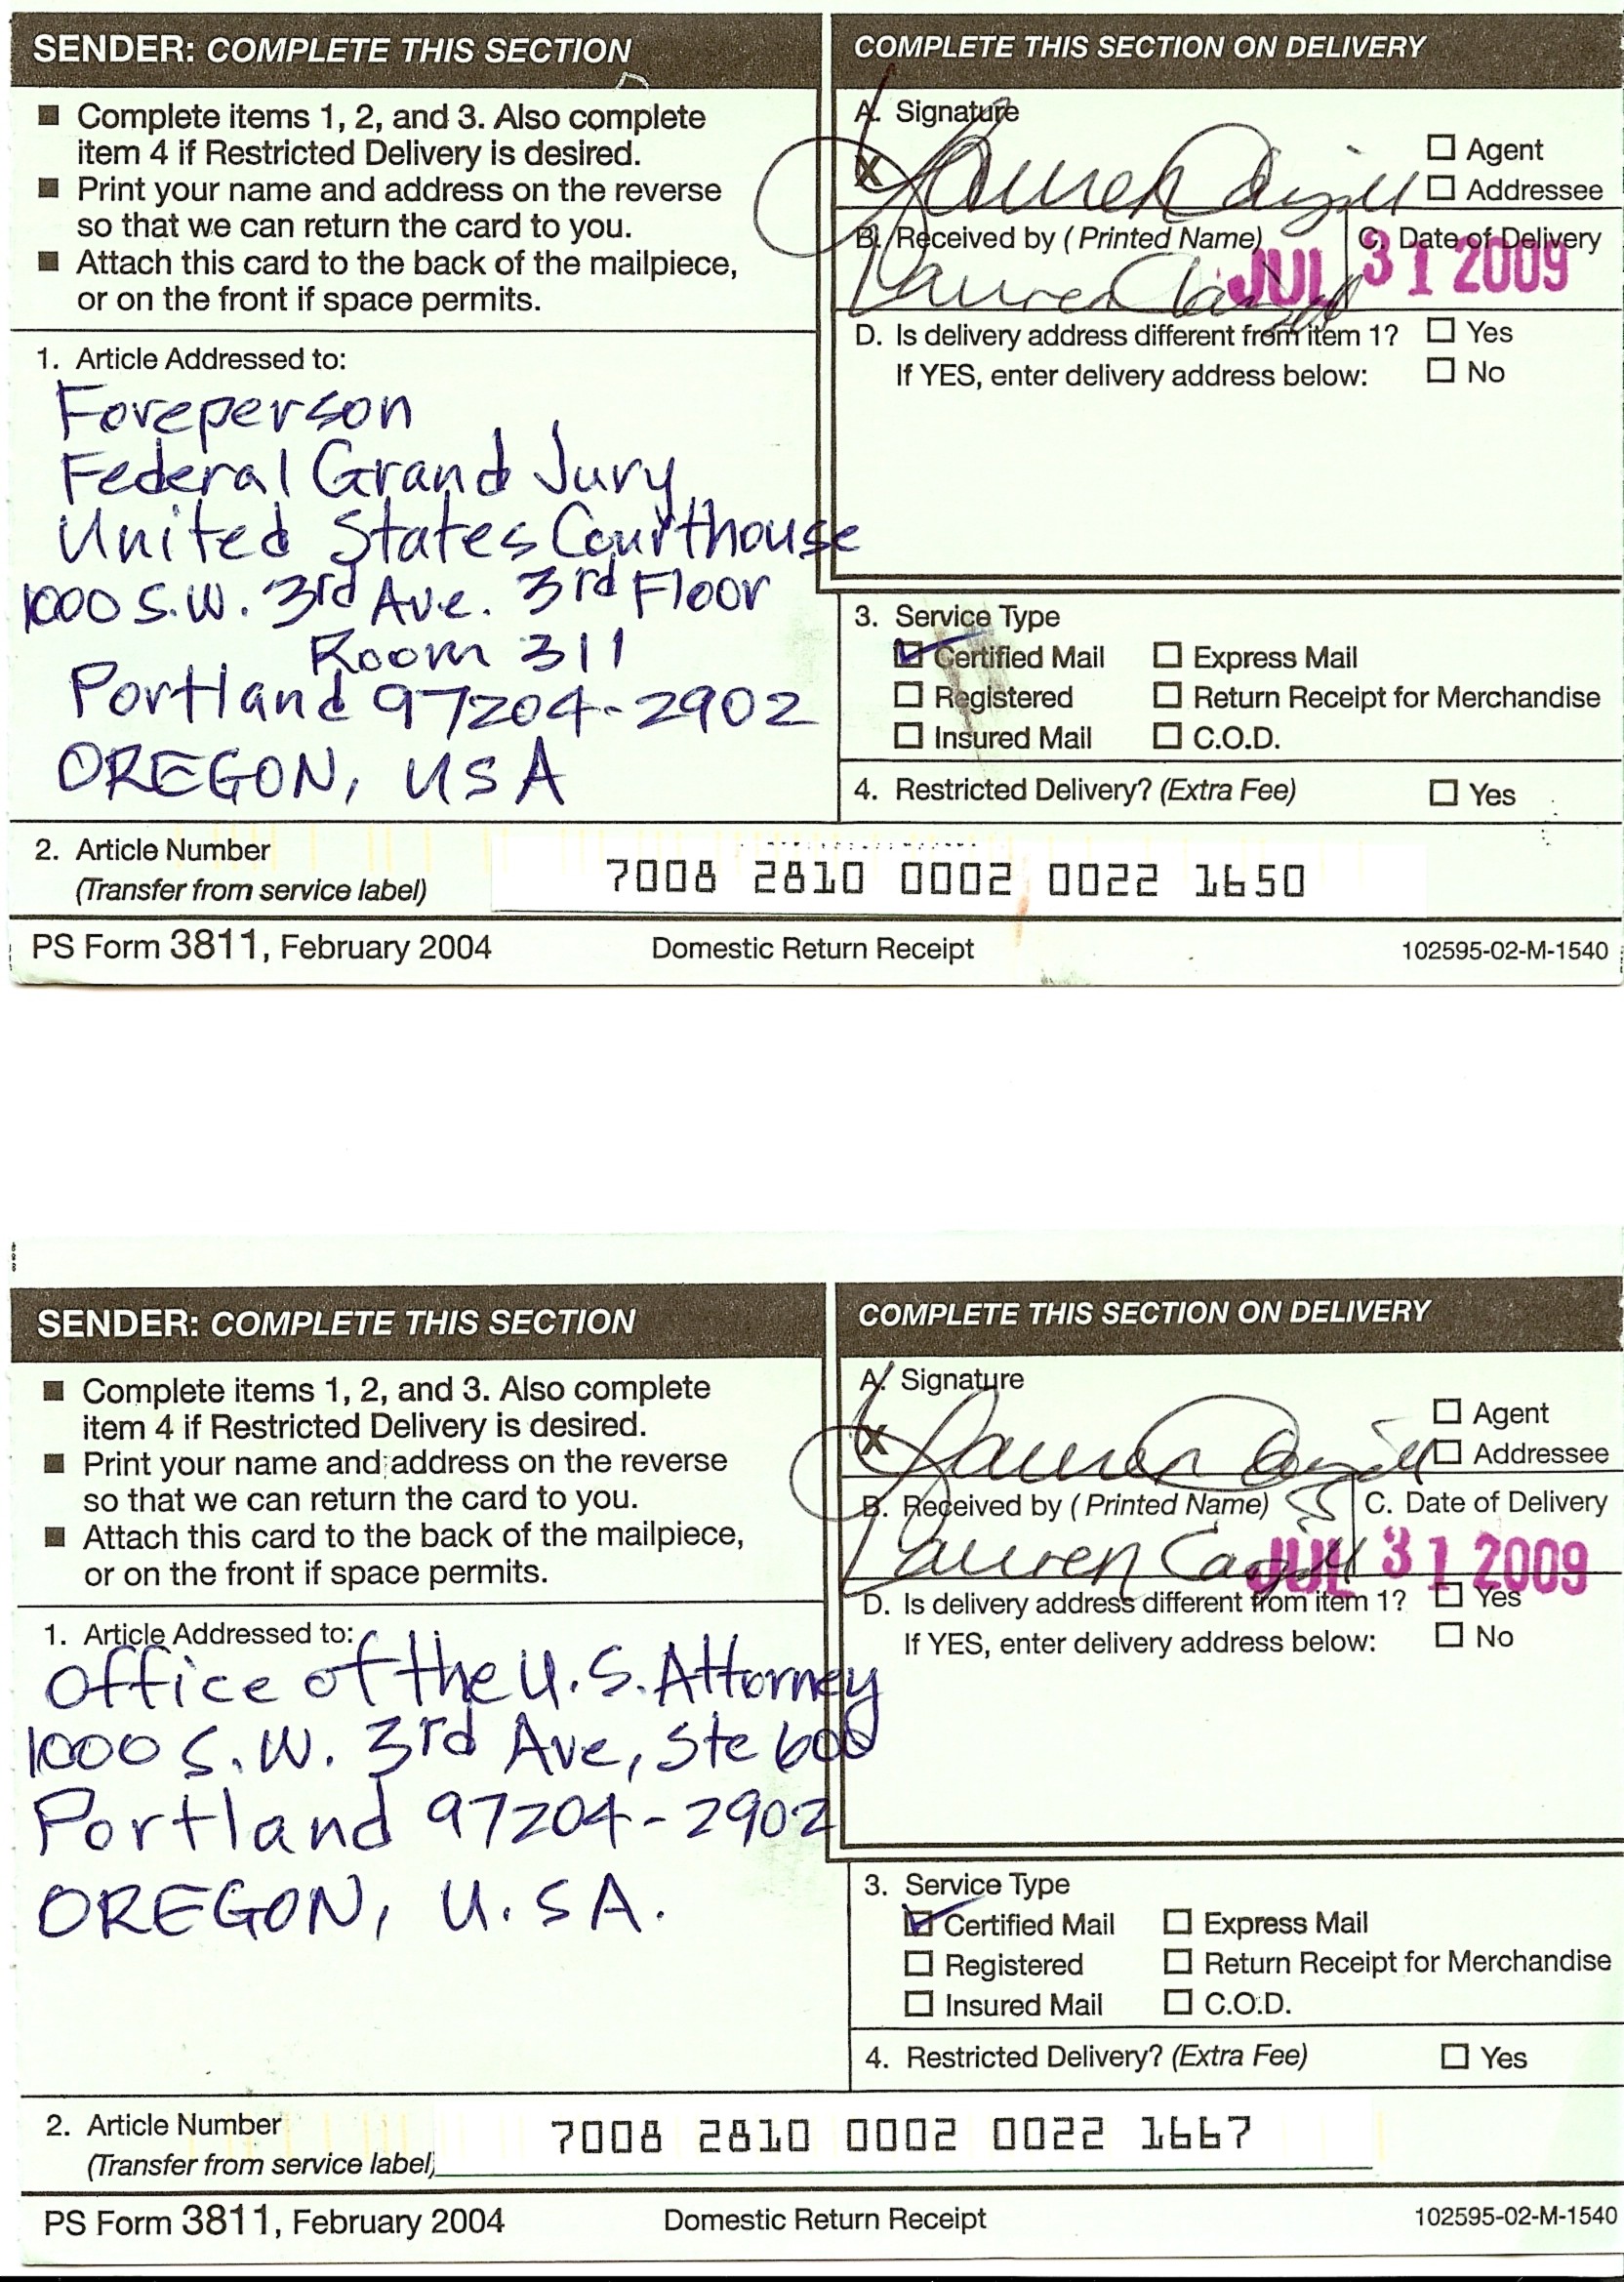 SENDER: COMPLETE THIS SECTION
■ Complete items 1, 2, and 3. Also complete
item 4 if Restricted Delivery is desired.
■ Print your name and address on the reverse
so that we can return the card to you.
■ Attach this card to the back of the mailpiece,
or on the front if space permits.
1. Article Addressed to:
Foreperson
Federal Grand Jury
United States Courthouse
1000 S.W. 3rd Ave. 3rd Floor
Room 311
Portland 97204-2902
OREGON, USA
COMPLETE THIS SECTION ON DELIVERY
A. Signature
X Lauren
☐ Agent
☐ Addressee
B. Received by (Printed Name)
Lauren
C. Date of Delivery
JUL 31 2009
D. Is delivery address different from item 1? ☐ Yes
If YES, enter delivery address below: ☐ No
3. Service Type
☑ Certified Mail ☐ Express Mail
☐ Registered ☐ Return Receipt for Merchandise
☐ Insured Mail ☐ C.O.D.
4. Restricted Delivery? (Extra Fee) ☐ Yes
2. Article Number
(Transfer from service label)
7008 2810 0002 0022 1650
PS Form 3811, February 2004 Domestic Return Receipt 102595-02-M-1540
SENDER: COMPLETE THIS SECTION
■ Complete items 1, 2, and 3. Also complete
item 4 if Restricted Delivery is desired.
■ Print your name and address on the reverse
so that we can return the card to you.
■ Attach this card to the back of the mailpiece,
or on the front if space permits.
1. Article Addressed to:
Office of the U.S. Attorney
1000 S.W. 3rd Ave, Ste 600
Portland 97204-2902
OREGON, U.S.A.
COMPLETE THIS SECTION ON DELIVERY
A. Signature
X Lauren
☐ Agent
☐ Addressee
B. Received by (Printed Name)
Lauren
C. Date of Delivery
JUL 31 2009
D. Is delivery address different from item 1? ☐ Yes
If YES, enter delivery address below: ☐ No
3. Service Type
☑ Certified Mail ☐ Express Mail
☐ Registered ☐ Return Receipt for Merchandise
☐ Insured Mail ☐ C.O.D.
4. Restricted Delivery? (Extra Fee) ☐ Yes
2. Article Number
(Transfer from service label)
7008 2810 0002 0022 1667
PS Form 3811, February 2004 Domestic Return Receipt 102595-02-M-1540